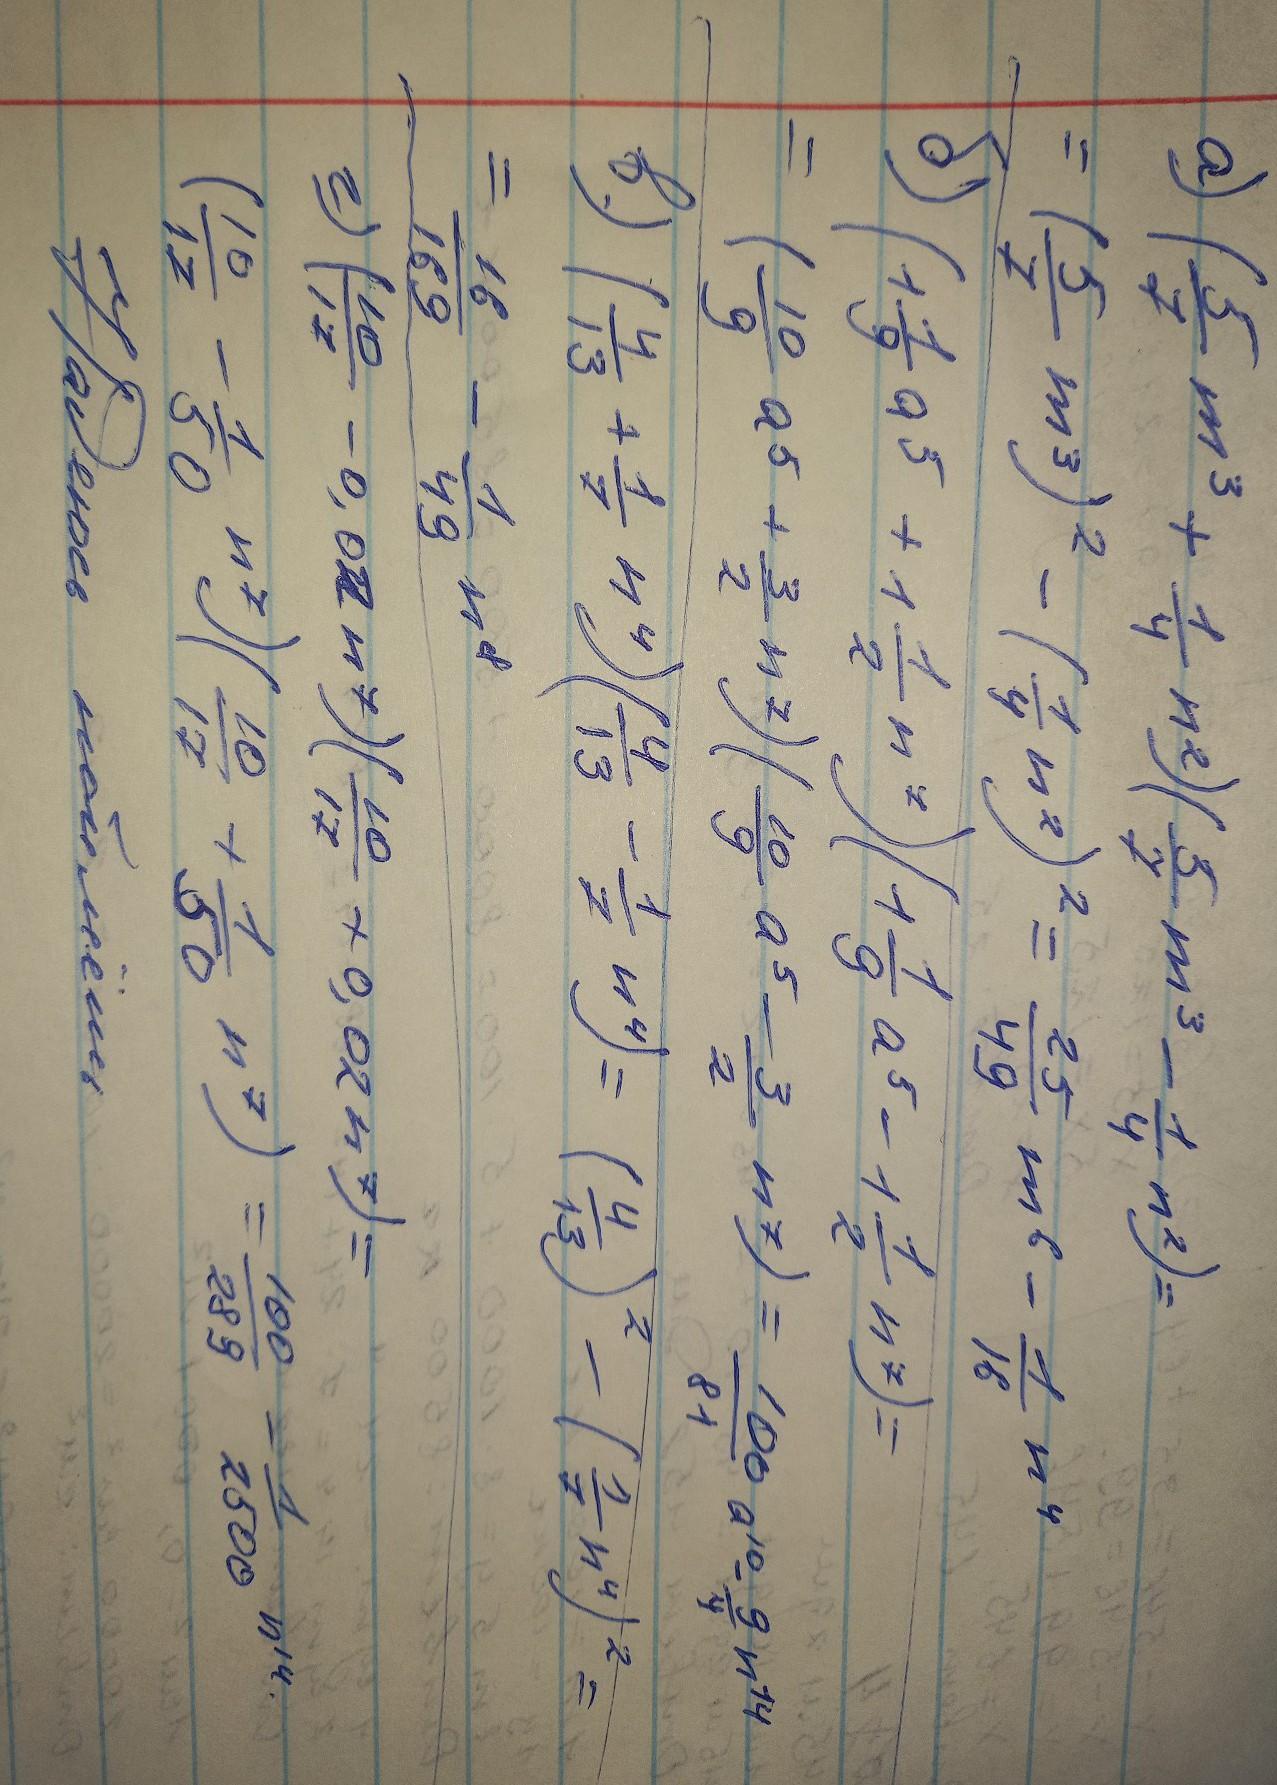 а) (5/7 m³ + 1/4 n²)(5/7 m³ - 1/4 n²) =
= (5/7 m³)² - (1/4 n²)² = 25/49 m⁶ - 1/16 n⁴
б) (1 1/9 a⁵ + 1 1/2 n⁷)(1 1/9 a⁵ - 1 1/2 n⁷) =
= (10/9 a⁵ + 3/2 n⁷)(10/9 a⁵ - 3/2 n⁷) = 100/81 a¹⁰ - 9/4 n¹⁴
в.) (4/13 + 1/7 n⁴)(4/13 - 1/7 n⁴) = (4/13)² - (1/7 n⁴)² =
= 16/169 - 1/49 n⁸
г) (10/17 - 0,02 n⁷)(10/17 + 0,02 n⁷) =
(10/17 - 1/50 n⁷)(10/17 + 1/50 n⁷) = 100/289 - 1/2500 n¹⁴.
надеюсь поймёшь